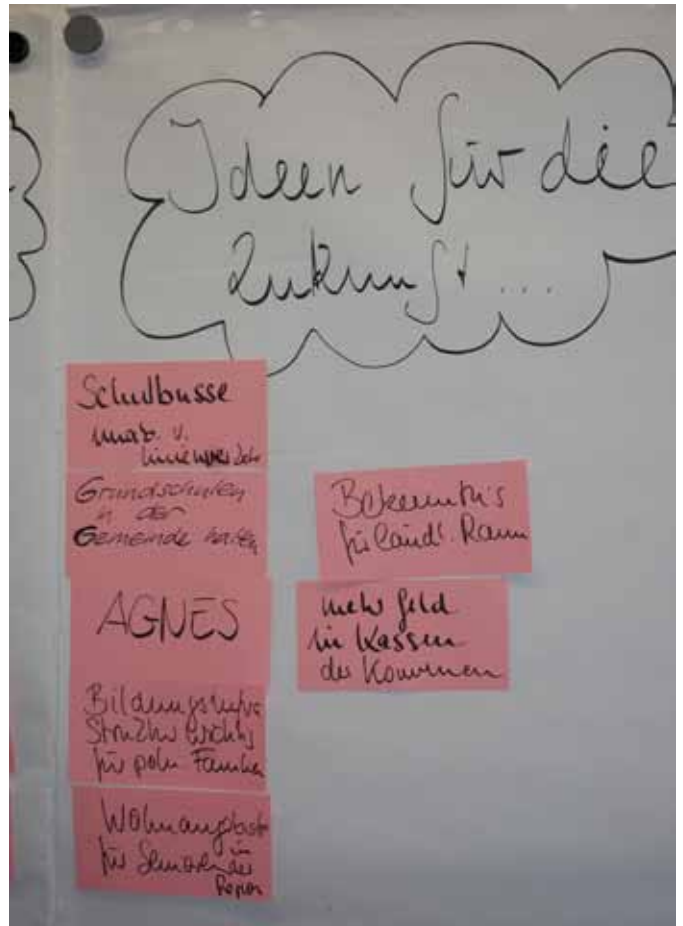 Ideen für die
Zukunft ...
Schulbusse
unab. v.
Grundschulen
in der
Gemeinde halten
AGNES
Bildungsinfra
Struktur wichtig
für poln. Familien
Wohnangebote
für Senioren in
der
Region
Bekenntnis
für ländl. Raum
mehr Geld
in Kassen
der Kommunen